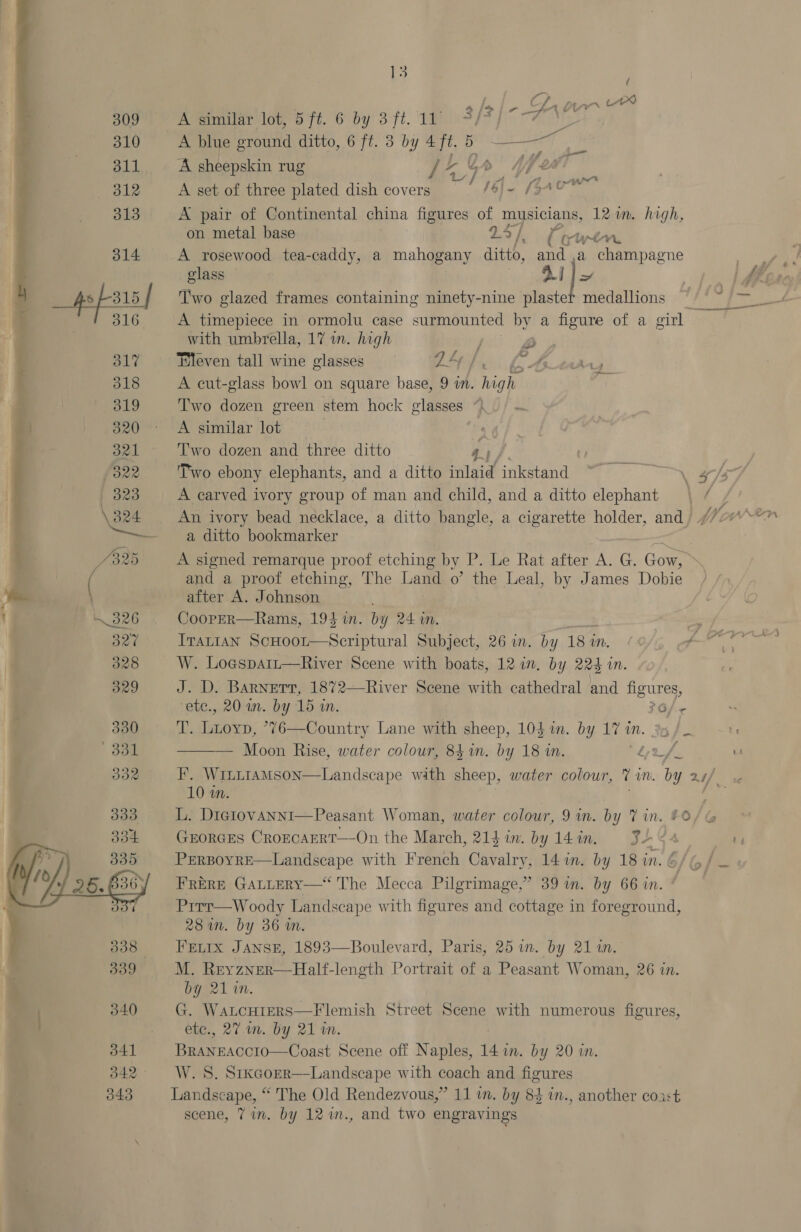 13
309 A similar lot, 5 ft. 6 by 3 ft. 11
310 A blue ground ditto, 6 ft. 3 by 4 ft. 5
311 A sheepskin rug
312 A set of three plated dish covers 16/-
313 A pair of Continental china figures of musicians, 12 in. high,
on metal base 25/.
314 A rosewood tea-caddy, a mahogany ditto, and a champagne
glass
315 Two glazed frames containing ninety-nine plaster medallions
316 A timepiece in ormolu case surmounted by a figure of a girl
with umbrella, 17 in. high
317 Eleven tall wine glasses 24/.
318 A cut-glass bowl on square base, 9 in. high
319 Two dozen green stem hock glasses
320 A similar lot
321 Two dozen and three ditto
322 Two ebony elephants, and a ditto inlaid inkstand
323 A carved ivory group of man and child, and a ditto elephant
324 An ivory bead necklace, a ditto bangle, a cigarette holder, and
a ditto bookmarker
325 A signed remarque proof etching by P. Le Rat after A. G. Gow,
and a proof etching, The Land o' the Leal, by James Dobie
after A. Johnson
326 COOPER—Rams, 19½ in. by 24 in.
327 ITALIAN SCHOOL—Scriptural Subject, 26 in. by 18 in.
328 W. LOGSDAIL—River Scene with boats, 12 in. by 22½ in.
329 J. D. BARNETT, 1872—River Scene with cathedral and figures,
etc., 20 in. by 15 in.
330 T. LLOYD, '76—Country Lane with sheep, 10½ in. by 17 in.
331 ——— Moon Rise, water colour, 8½ in. by 18 in.
332 F. WILLIAMSON—Landscape with sheep, water colour, 7 in. by
10 in.
333 L. DIGIOVANNI—Peasant Woman, water colour, 9 in. by 7 in.
334 GEORGES CROEGAERT—On the March, 21½ in. by 14 in.
335 PERBOYRE—Landscape with French Cavalry, 14 in. by 18 in.
336 FRÈRE GALLERY—“ The Mecca Pilgrimage,” 39 in. by 66 in.
337 PITT—Woody Landscape with figures and cottage in foreground,
28 in. by 36 in.
338 FELIX JANSE, 1893—Boulevard, Paris, 25 in. by 21 in.
339 M. REYZNER—Half-length Portrait of a Peasant Woman, 26 in.
by 21 in.
340 G. WALCHIERS—Flemish Street Scene with numerous figures,
etc., 27 in. by 21 in.
341 BRANEACCIO—Coast Scene off Naples, 14 in. by 20 in.
342 W. S. SIXGOER—Landscape with coach and figures
343 Landscape, “ The Old Rendezvous,” 11 in. by 8½ in., another coast
scene, 7 in. by 12 in., and two engravings